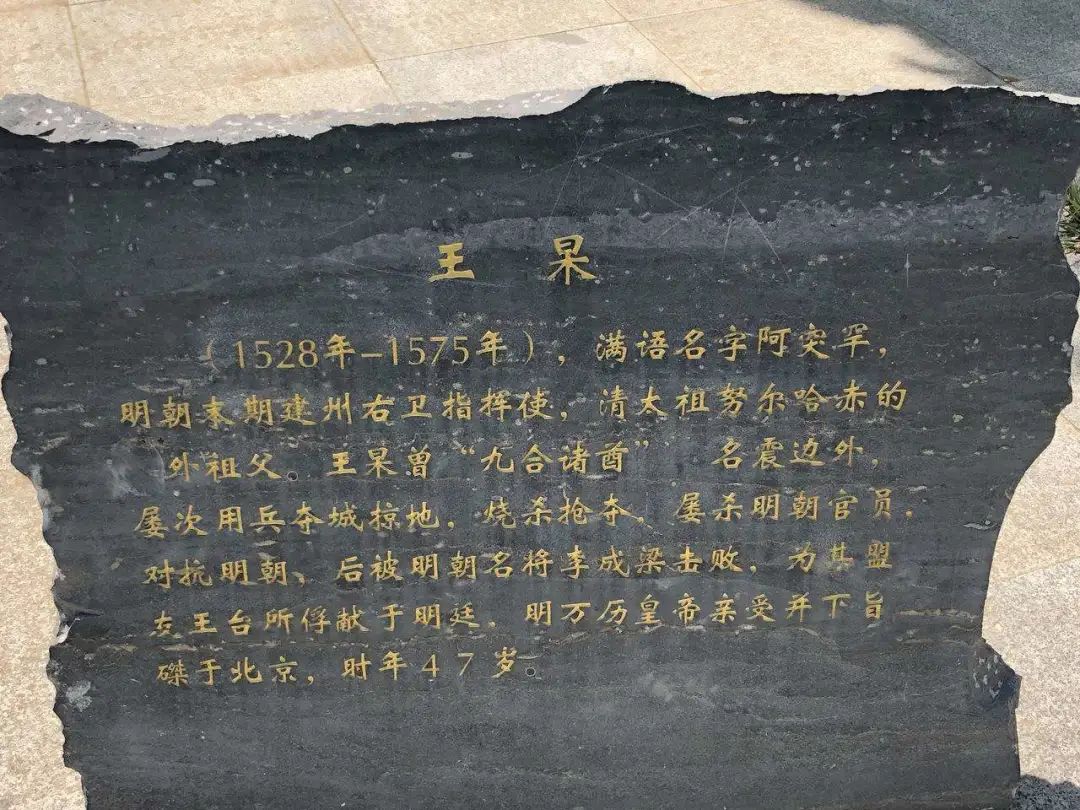 王杲
（1528年-1575年），满语名字阿突罕，
明朝末期建州右卫指挥使，清太祖努尔哈赤的
外祖父。王杲曾“九合诸酋” 名震边外，
屡次用兵夺城掠地，烧杀抢夺，屡杀明朝官员，
对抗明朝、后被明朝名将李成梁击败，为其盟
友王台所俘献于明廷，明万历皇帝亲受并下旨
磔于北京，时年47岁。